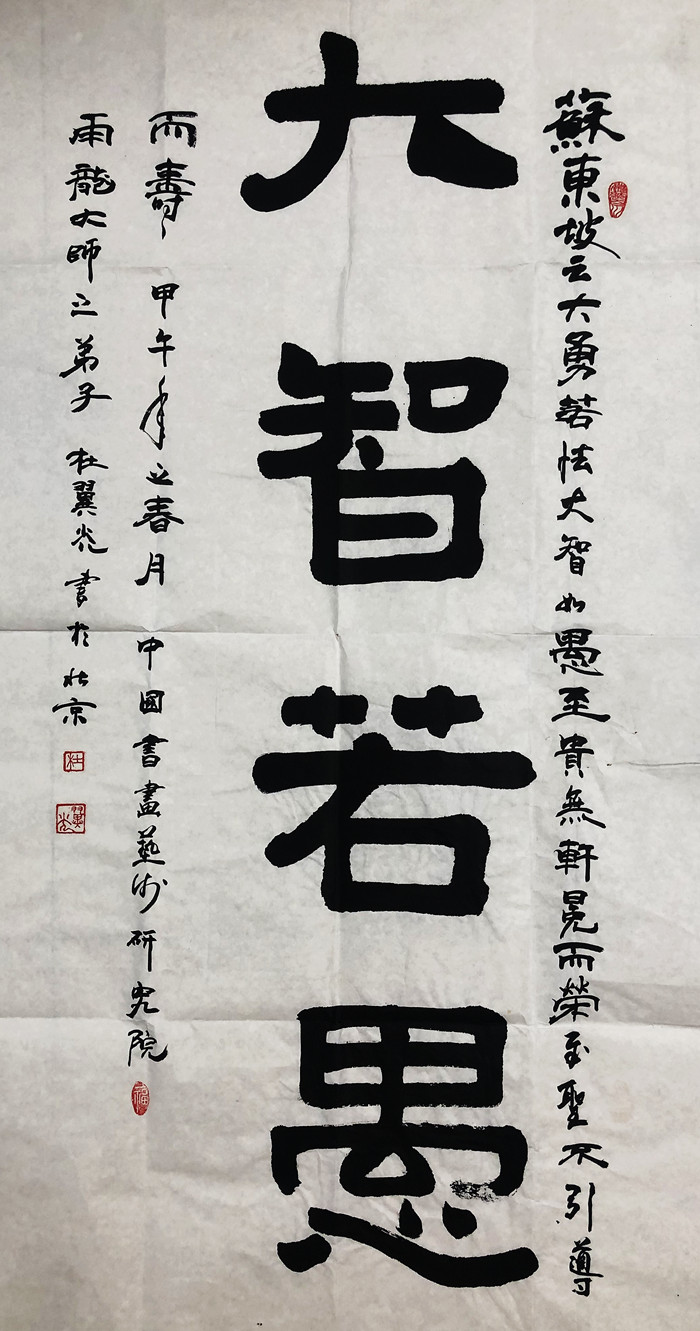 蘇東坡云大勇若怯大智如愚至貴無軒冕而榮至聖不引導
大智若愚
而壽 甲午年之春月 中國書畫藝術研究院
雨龍大師之弟子 杜翼光書於北京
杜
翼光
福